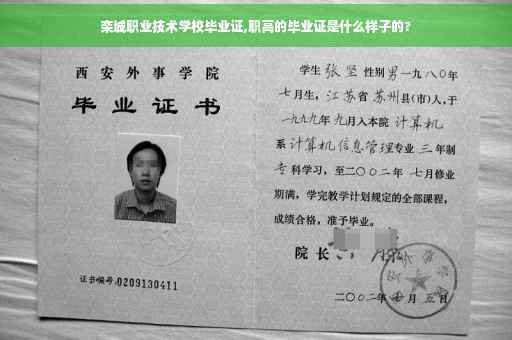 栾城职业技术学校毕业证,职高的毕业证是什么样子的?
西安外事学院
毕业证书
证书编号:0209130411
学生 张坚 性别 男 一九八〇年
七月生, 江苏省 苏州县(市)人, 于
一九九九年 九月入本院 计算机
系 计算机信息管理专业 三 年制
专科学习, 至二〇〇二年 七月修业
期满, 学完教学计划规定的全部课程,
成绩合格, 准予毕业。
院长
二〇〇二年 月 五日